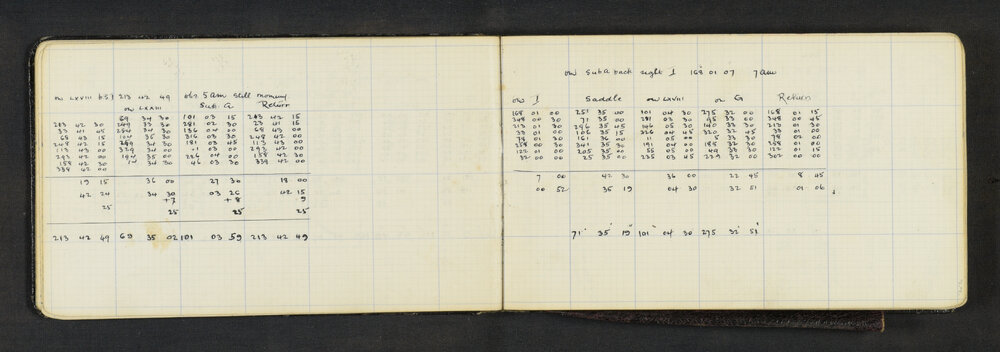 on LXVIII B.S.) 213 42 49 obs. 5am still morning
on LXXIII Sub. A Return
69 34 30 101 03 15 203 42 15
203 42 30 249 33 30 281 02 30 23 41 15
33 41 45 204 34 30 136 04 00 68 43 00
68 43 15 104 35 30 316 03 30 248 42 00
248 42 15 289 34 30 181 03 45 113 43 00
113 43 00 329 34 00 41 03 00 293 42 00
293 42 00 194 35 00 226 04 00 158 42 30
158 42 30 14 34 30 46 03 30 338 42 00
338 42 00
19 15 36 00 27 30 18 00
42 24 34 30 03 26 42 15
+7 +8 9
25 25 25 25
213 42 49 69 35 02 101 03 59 213 42 49
on Sub A back sight I 168 01 07 7am
on I Saddle on LXVIII on G Return
168 01 00 251 35 00 101 04 30 275 32 00 168 01 15
348 00 30 71 35 00 281 03 30 95 33 00 348 00 45
213 01 30 296 35 45 146 05 30 140 33 30 213 01 30
33 01 00 106 35 15 326 04 45 320 32 45 33 01 00
78 01 30 161 36 00 11 05 00 5 33 00 78 02 00
258 00 30 341 35 30 191 04 00 185 32 30 258 01 00
122 01 00 205 35 00 55 05 00 49 33 30 122 01 15
32 00 25 35 00 235 03 45 229 32 00 302 00 00
7 00 42 30 36 00 22 45 8 45
00 52 35 19 04 30 32 51 01 06
71° 35' 19" 101° 04 30 275 32' 51"